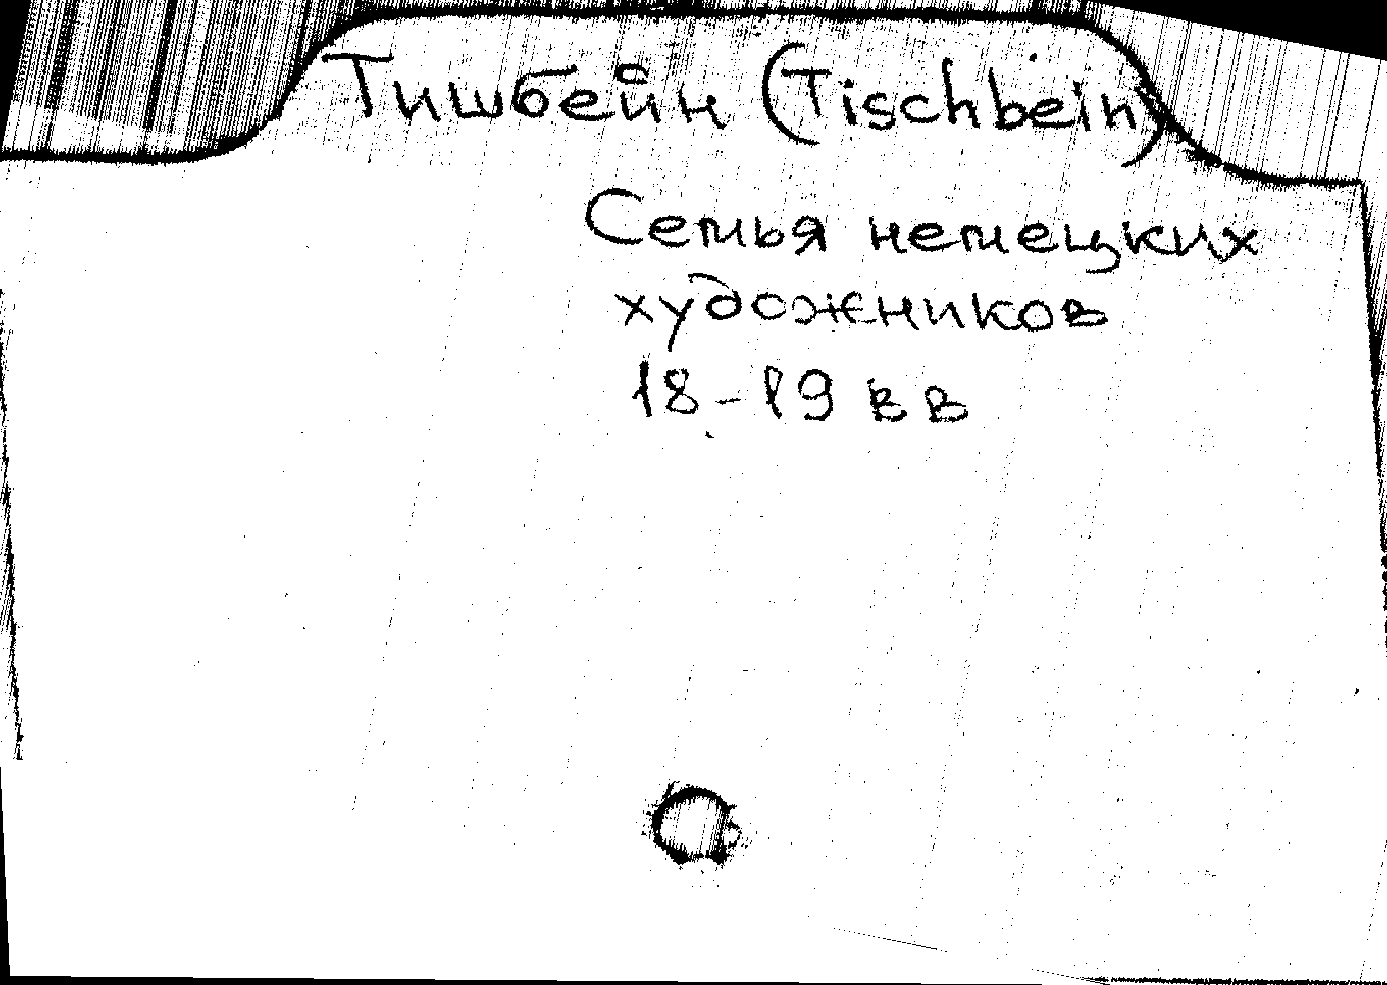 Тишбейн (Tischbein)
Семья немецких
художников
18-19 вв